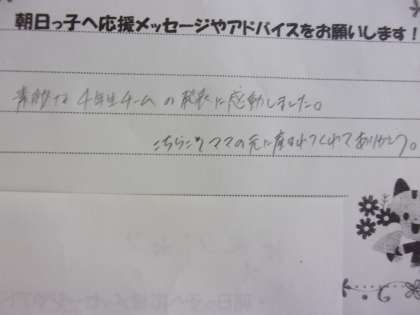 朝日っ子へ応援メッセージやアドバイスをお願いします！
素敵な4年生チームの発表に感動しました。
こちらこそママの元に産まれてくれてありがとう。